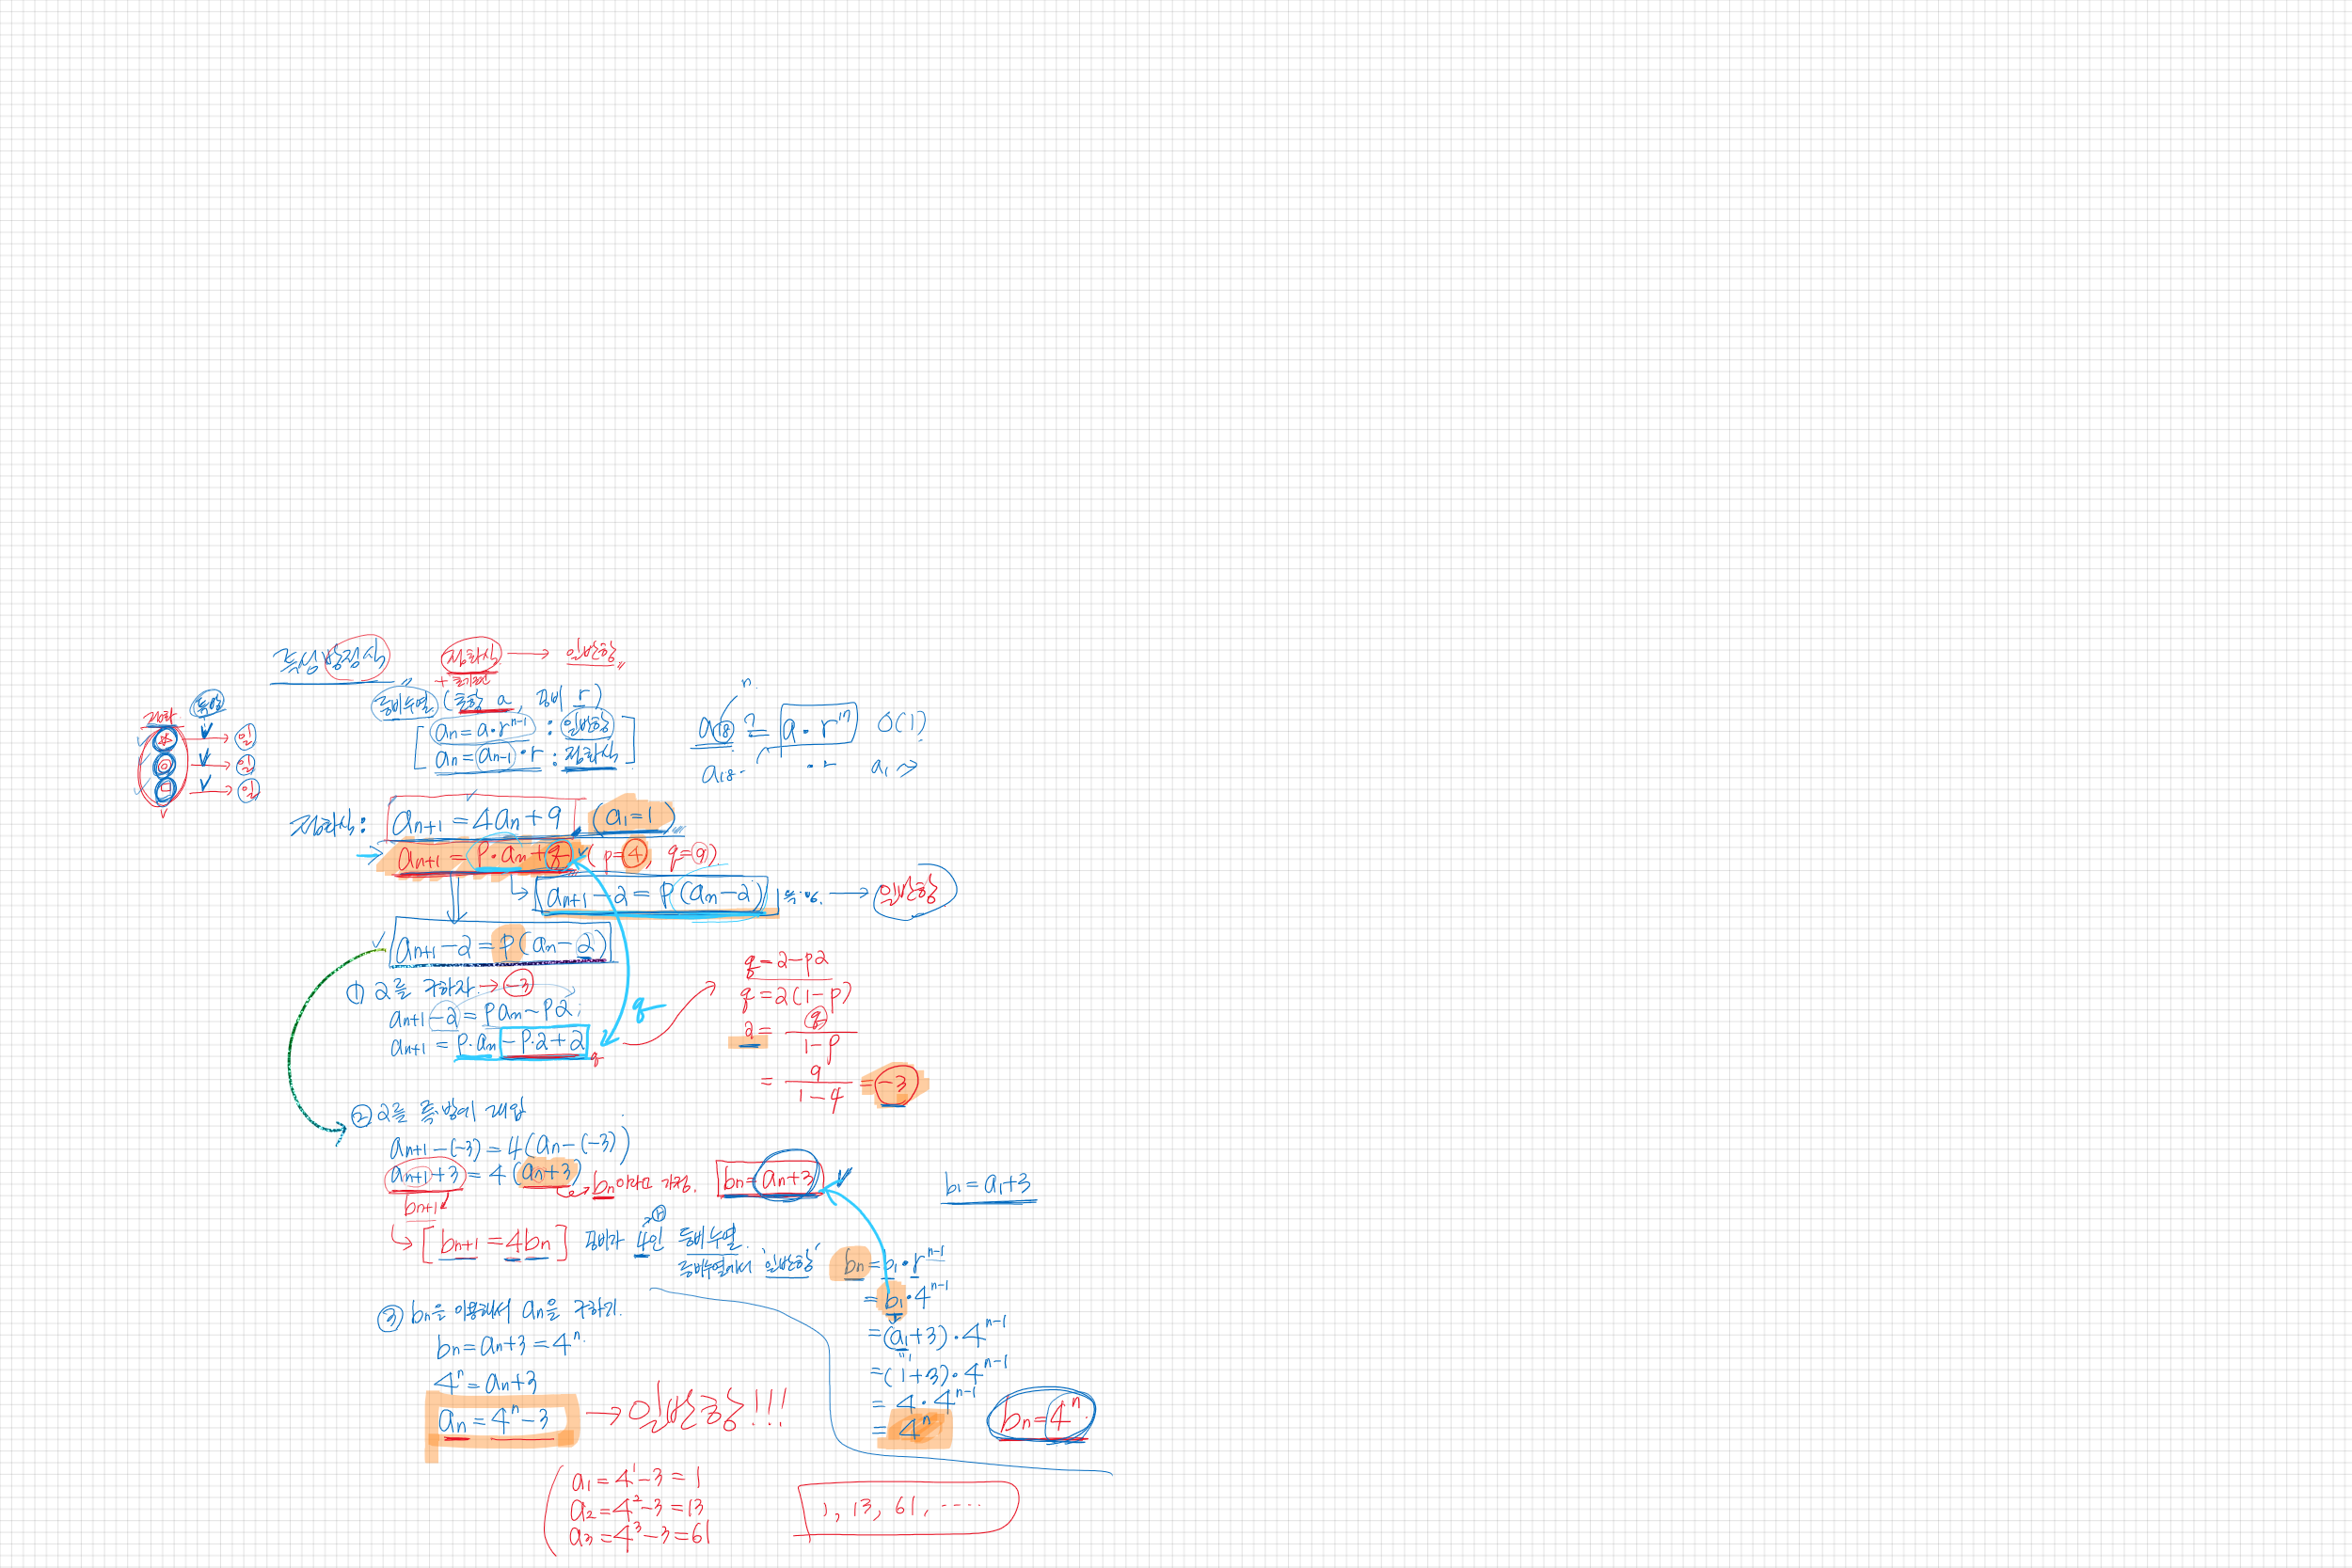 특성방정식
점화식 → 일반항
+ 초기조건
등비수열 (초항 a, 공비 r)
aₙ = a·rⁿ⁻¹ : 일반항
aₙ = aₙ₋₁·r : 점화식
n
a₁₈ = a·r¹⁷ O(1)
?
a₁₈ ·r a₁
점화 특성
☆ → 일
◎ → 일
□ → 일
점화식: aₙ₊₁ = 4aₙ + 9 (a₁=1)
aₙ₊₁ = p·aₙ + q (p=4, q=9)
aₙ₊₁ - α = p(aₙ - α) 특·방. → 일반항
aₙ₊₁ - α = p(aₙ - α)
① α를 구하자 → -3
aₙ₊₁ - α = paₙ - pα;
aₙ₊₁ = p·aₙ - p·α + α
q
q
q = α - pα
q = α(1-p)
α = q/(1-p)
= 9/(1-4) = -3
② α를 특·방에 대입
aₙ₊₁ - (-3) = 4(aₙ - (-3))
aₙ₊₁ + 3 = 4(aₙ+3)
bₙ이라고 가정. bₙ = aₙ+3
b₁ = a₁+3
bₙ₊₁
[bₙ₊₁ = 4bₙ] 공비가 4인 등비수열.
등비수열에서 '일반항' bₙ = b₁·rⁿ⁻¹
= b₁·4ⁿ⁻¹
= (a₁+3)·4ⁿ⁻¹
= (1+3)·4ⁿ⁻¹
= 4·4ⁿ⁻¹
= 4ⁿ
bₙ = 4ⁿ.
③ bₙ을 이용해서 aₙ을 구하기.
bₙ = aₙ+3 = 4ⁿ.
4ⁿ = aₙ+3
aₙ = 4ⁿ-3 → 일반항!!!
a₁ = 4¹-3 = 1
a₂ = 4²-3 = 13
a₃ = 4³-3 = 61
1, 13, 61, ·····